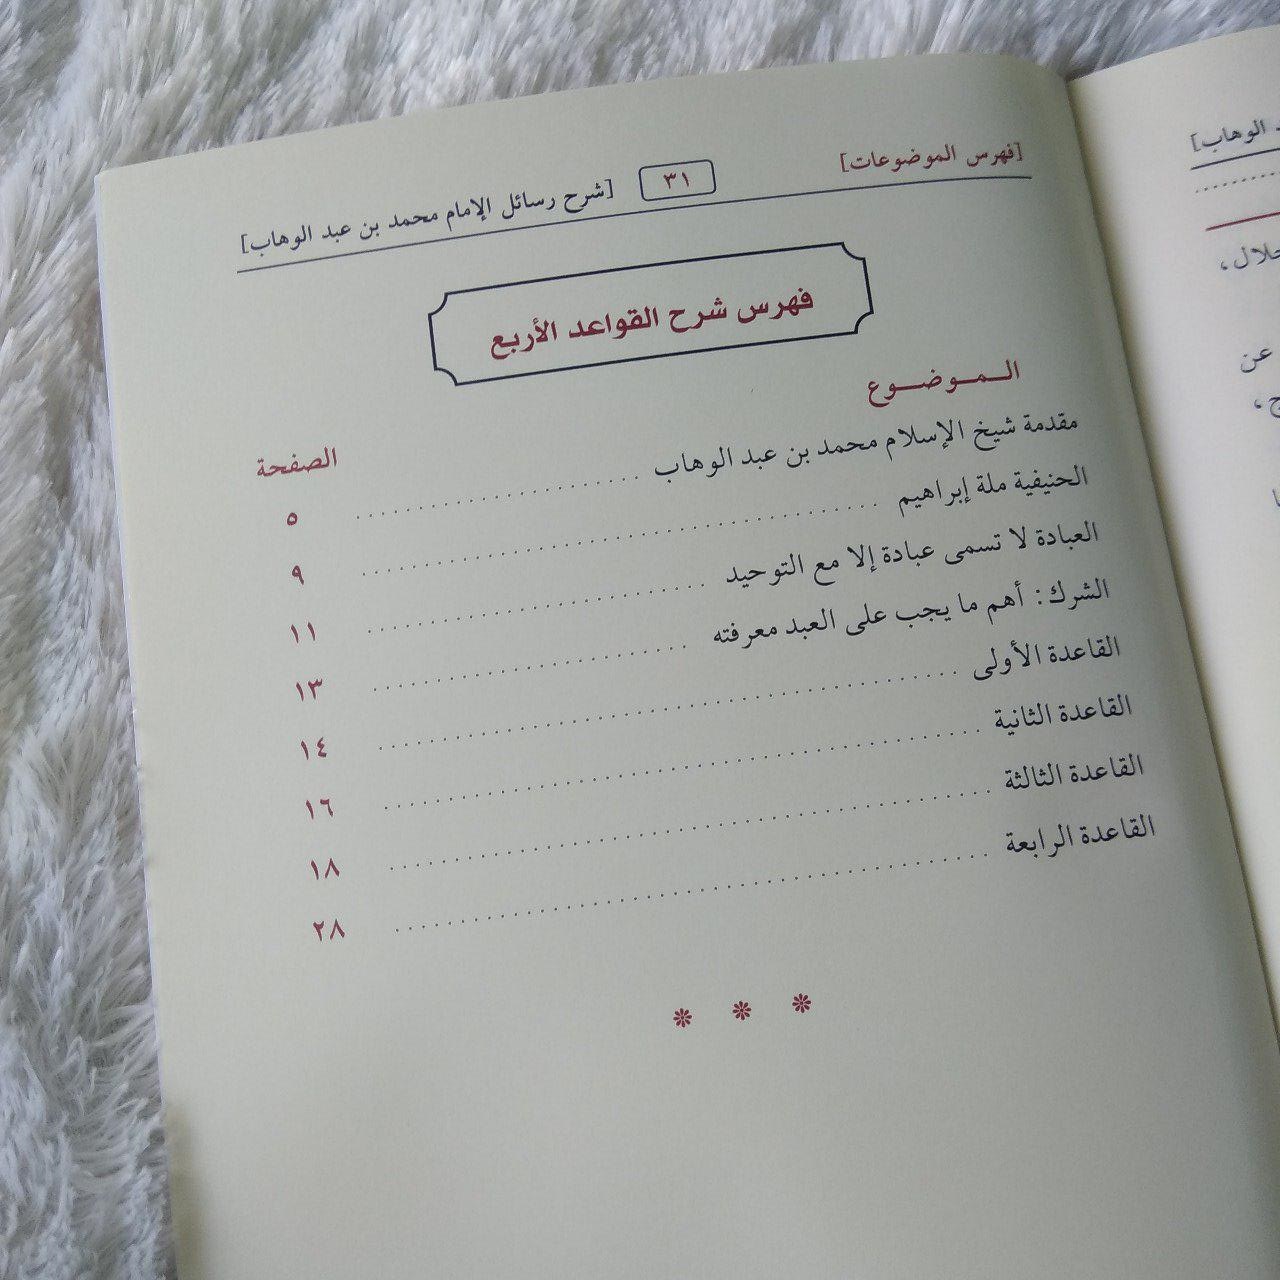 [فهرس الموضوعات] ٣١ [شرح رسائل الإمام محمد بن عبد الوهاب]
فهرس شرح القواعد الأربع
الـمـوضـوع الصفحة
مقدمة شيخ الإسلام محمد بن عبد الوهاب ........................ ٥
الحنيفية ملة إبراهيم ........................ ٩
العبادة لا تسمى عبادة إلا مع التوحيد ........................ ١١
الشرك: أهم ما يجب على العبد معرفته ........................ ١٣
القاعدة الأولى ........................ ١٤
القاعدة الثانية ........................ ١٦
القاعدة الثالثة ........................ ١٨
القاعدة الرابعة ........................ ٢٨
الوهاب]
عن